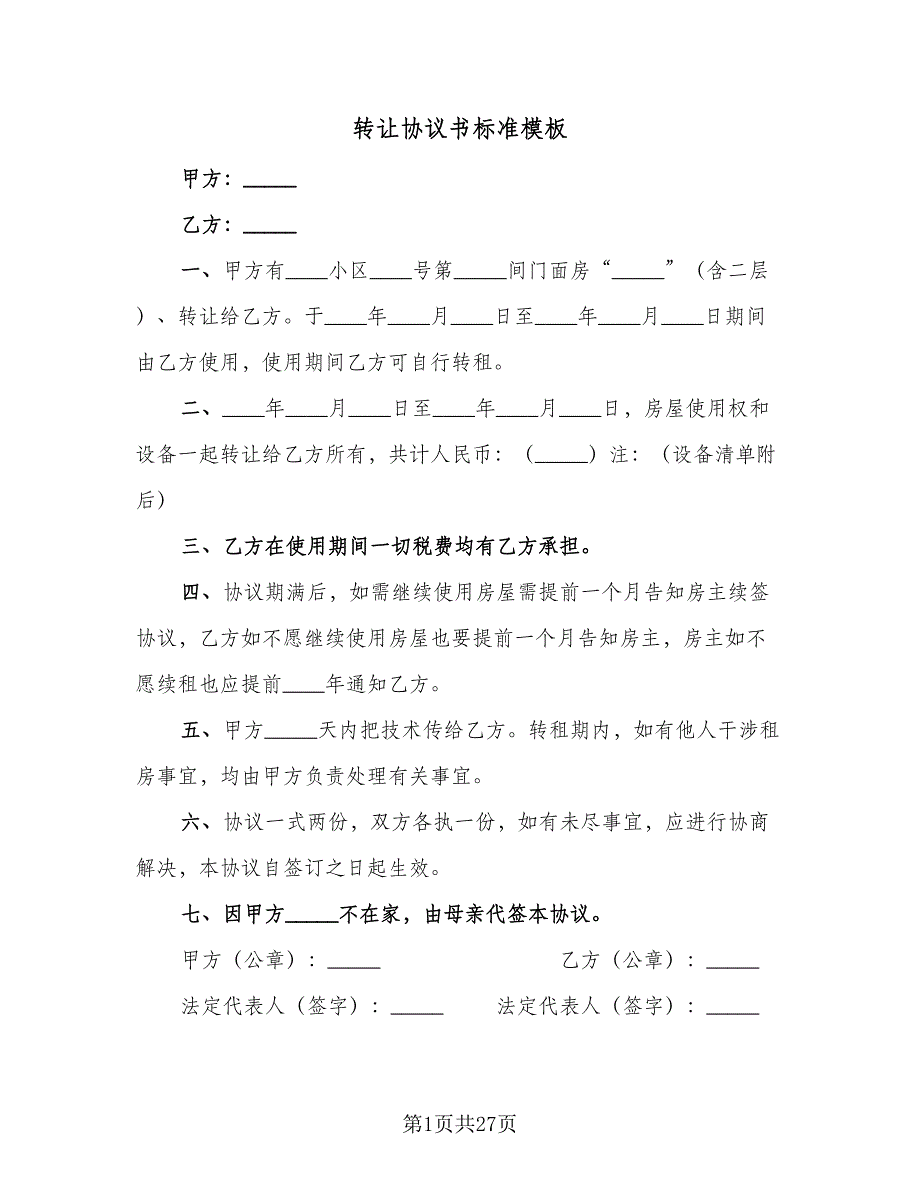 转让协议书标准模板
甲方：_____
乙方：_____
一、甲方有____小区____号第_____间门面房“_____”（含二层
）、转让给乙方。于____年____月____日至____年____月____日期间
由乙方使用，使用期间乙方可自行转租。
二、____年____月____日至____年____月____日，房屋使用权和
设备一起转让给乙方所有，共计人民币：（_____）注：（设备清单附
后）
三、乙方在使用期间一切税费均有乙方承担。
四、协议期满后，如需继续使用房屋需提前一个月告知房主续签
协议，乙方如不愿继续使用房屋也要提前一个月告知房主，房主如不
愿续租也应提前____年通知乙方。
五、甲方_____天内把技术传给乙方。转租期内，如有他人干涉租
房事宜，均由甲方负责处理有关事宜。
六、协议一式两份，双方各执一份，如有未尽事宜，应进行协商
解决，本协议自签订之日起生效。
七、因甲方_____不在家，由母亲代签本协议。
甲方（公章）：_____ 乙方（公章）：_____
法定代表人（签字）：_____ 法定代表人（签字）：_____
第1页共27页